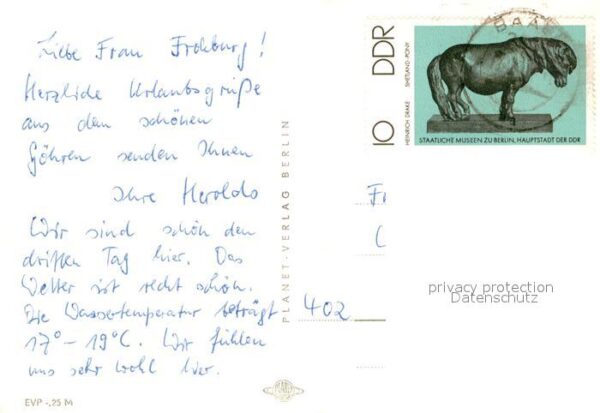 Liebe Frau Frohburg!
Herzliche Urlaubsgrüße
aus dem schönen
Göhren senden Ihnen
Ihre Herolds
Wir sind schon den
dritten Tag hier. Das
Wetter ist recht schön.
Die Wassertemperatur beträgt
17° - 19°C. Wir fühlen
uns sehr wohl hier.
EVP -,25 M
PLANET-VERLAG BERLIN
PLANET
10 DDR
HEINRICH DRAKE SHETLAND-PONY
STAATLICHE MUSEEN ZU BERLIN, HAUPTSTADT DER DDR
BAA
Fr
402
privacy protection
Datenschutz